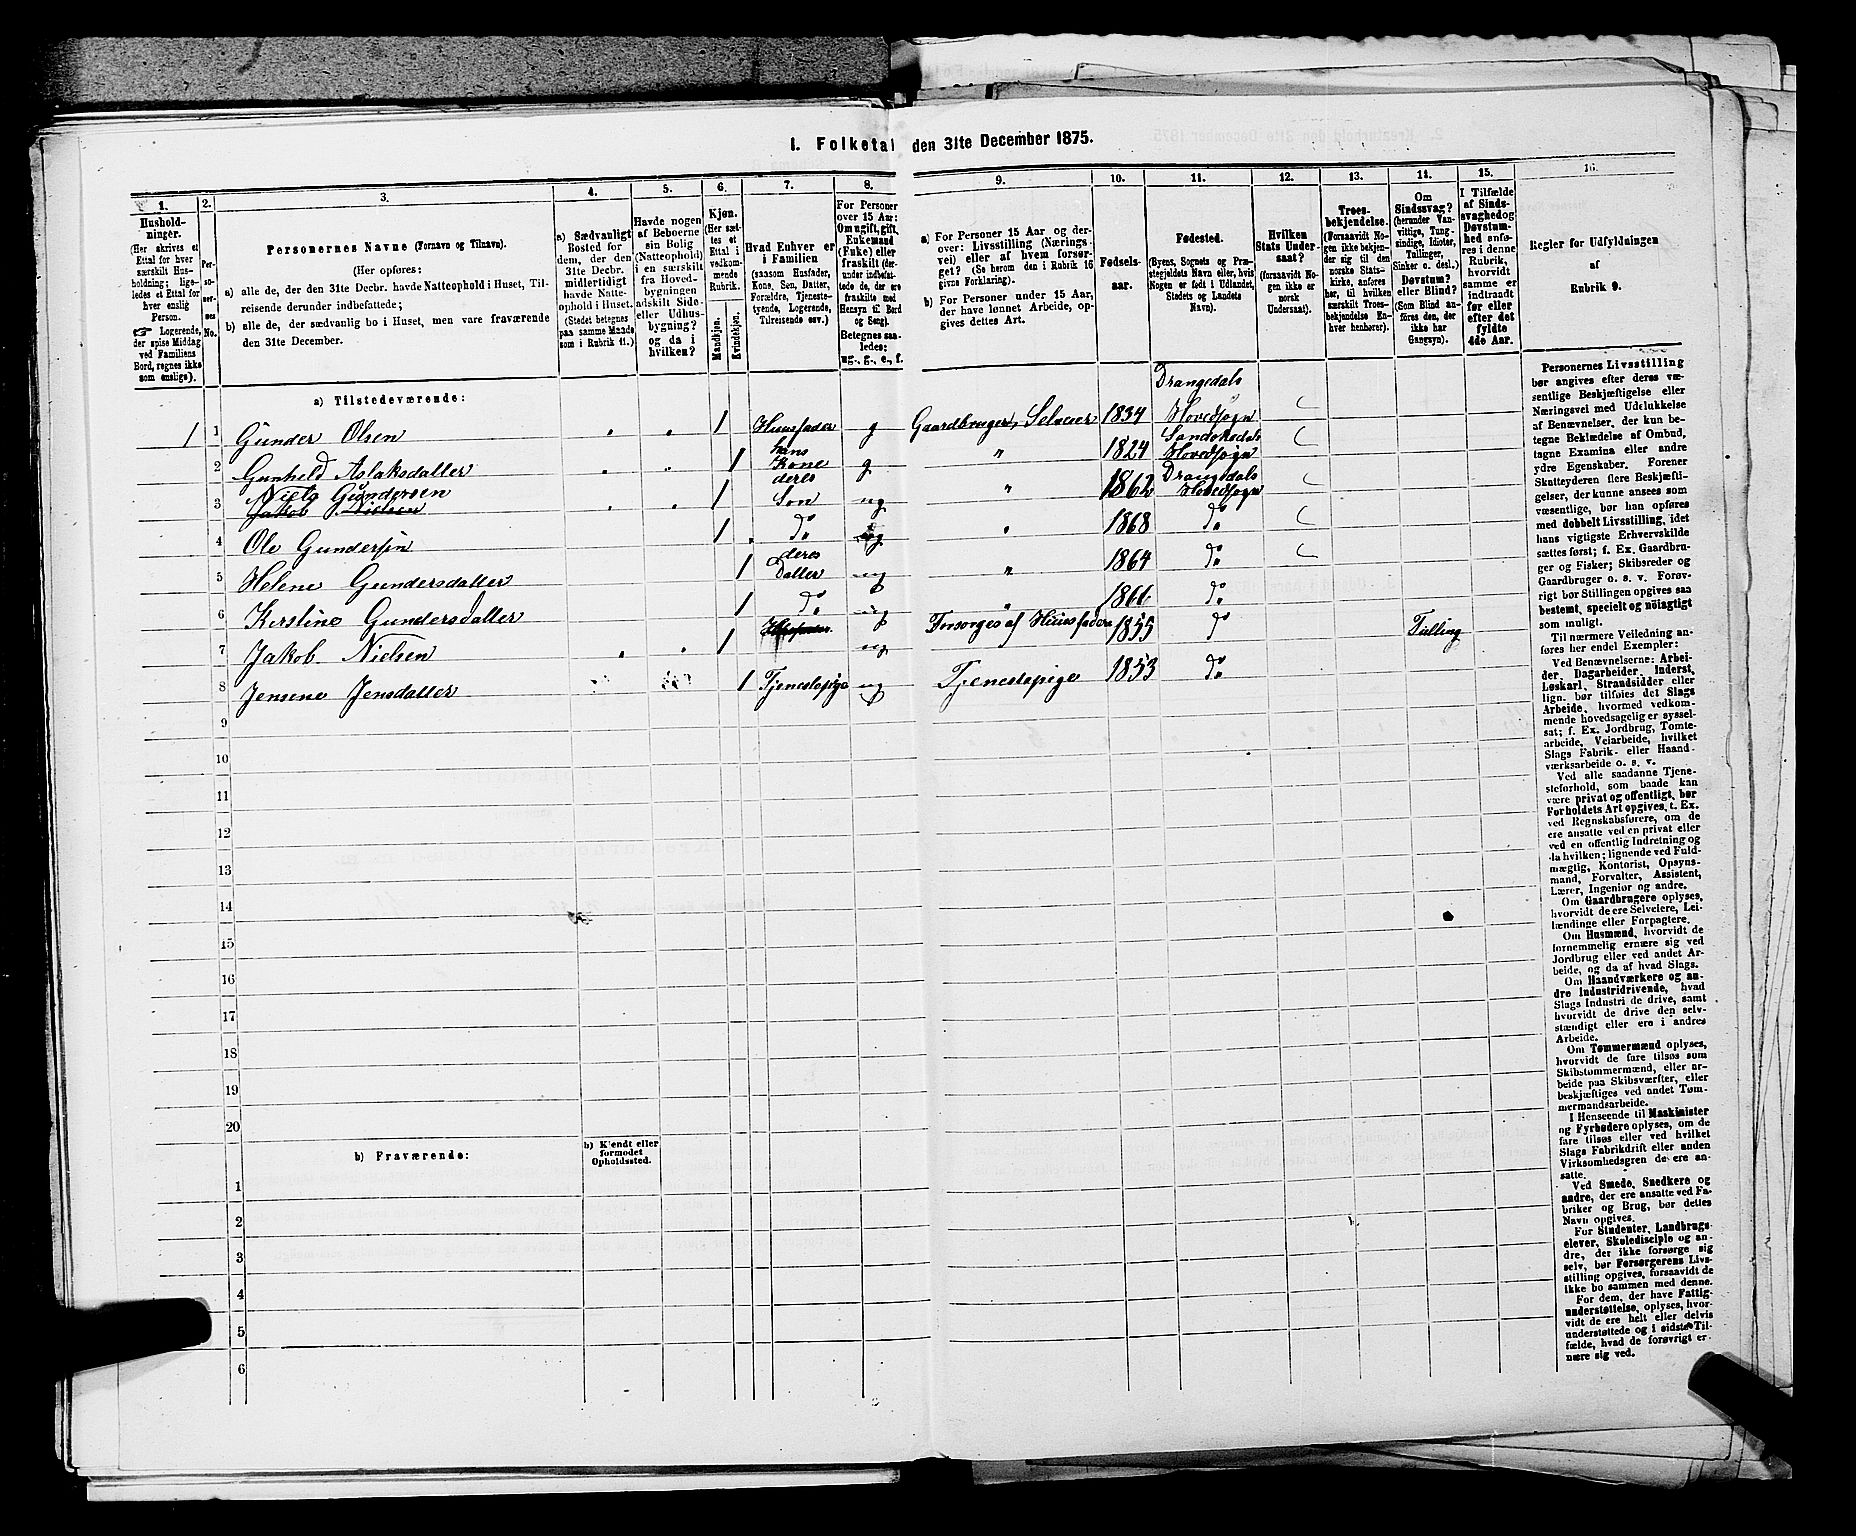 1. Folketal den 31te December 1875.
1. 2. 3. 4. 5. 6. 7. 8. 9. 10. 11. 12. 13. 14. 15. 16.
Husholdninger.
(Her skrives et
Ettal for hver
særskilt Husholdning;
ligeledes et Ettal for
hver enslig
Person.
☞ Logerende,
der spise Middag
ved Familiens
Bord, regnes ikke
som enslige).
Personernes No.
Personernes Navne (Fornavn og Tilnavn).
(Her opføres:
a) alle de, der den 31te Decbr. havde Natteophold i Huset, Tilreisende derunder indbefattede;
b) alle de, der sædvanlig bo i Huset, men vare fraværende
den 31te December.
a) Sædvanligt
Bosted for
dem, der den
31te Decbr.
midlertidigt
havde Natteophold i Huset.
(Stedet betegnes
paa samme Maade
som i Rubrik 11.)
Havde nogen
af Beboerne
sin Bolig
(Natteophold)
i en særskilt
fra Hovedbygningen
adskilt Side-
eller Udhusbygning?
og da i
hvilken?
Kjøn.
(Her sættes et
Ettal i
vedkommende
Rubrik.
Mandkjøn.
Kvindekjøn.
Hvad Enhver er
i Familien
(saasom Husfader,
Kone, Søn, Datter,
Forældre, Tjenestetyende, Logerende,
Tilreisende osv.)
For Personer
over 15 Aar:
Om ugift, gift,
Enkemand
(Enke) eller
fraskilt (derunder indbefattede de, der ere
fraskilte med
Hensyn til Bord
og Seng).
Betegnes saaledes:
ug., g., e., f.
a) For Personer 15 Aar og derover: Livsstilling (Næringsvei) eller af hvem forsørget? (Se herom den i Rubrik 16
givne Forklaring).
b) For Personer under 15 Aar,
der have lønnet Arbeide, opgives dettes Art.
Fødselsaar.
Fødested.
(Byens, Sognets og Præstegjeldets Navn eller, hvis
Nogen er født i Udlandet,
Stedets og Landets
Navn).
Hvilken
Stats Undersaat?
(forsaavidt Nogen ikke er
norsk
Undersaat).
Troesbekjendelse.
(Forsaavidt Nogen ikke bekjender sig til den
norske Statskirke, anføres
her, til hvilken
særskilt Troesbekjendelse Enhver henhører).
Om
Sindssvag?
(herunder Vanvittige, Tungsindige, Idioter,
Tullinger,
Sinker o. desl.)
Døvstum?
eller Blind?
(Som Blind anføres den, der
ikke har
Gangsyn).
I Tilfælde
af Sindssvaghed og
Døvstumhed anføres i denne
Rubrik,
hvorvidt
samme er
indtraadt
før eller
efter det
fyldte
4de Aar.
Regler for Udfyldningen
af
Rubrik 9.
a) Tilstedeværende:
1 1 Gunder Olsen " " 1 Huusfader g Gaardbruger, Selveier 1834 Drangedals Hovedsogn
2 Gunhild Aslaksdatter " " 1 hans Kone g " 1824 Sandøkedals Hovedsogn
3 Niels Gundersen Jakob Nielsen " " 1 deres Søn ug " 1862 Drangedals Hovedsogn
4 Ole Gundersen 1 do ug " 1868 do
5 Helene Gundersdatter 1 deres Datter ug " 1864 do
6 Kirstine Gundersdatter 1 do ug " 1866 do
7 Jakob Nielsen " " 1 Husfader ug Forsørges af Huusfaderen 1855 do Tulling
8 Jensine Jensdatter 1 Tjenestepige ug Tjenestepige 1853 do
9
10
11
12
13
14
15
16
17
18
19
20
b) Fraværende:
b) Kjendt eller
formodet
Opholdssted.
1
2
3
4
5
6
Personernes Livsstilling
bør angives efter deres væsentlige Beskjæftigelse eller
Næringsvei med Udelukkelse
af Benævnelser, der kun betegne Beklædelse af Ombud,
tagne Examina eller andre
ydre Egenskaber. Forener
Skatteyderen flere Beskjæftigelser, der kunne ansees som
væsentlige, bør han opføres
med dobbelt Livsstilling, idet
hans vigtigste Erhvervskilde
sættes først; f. Ex. Gaardbruger og Fisker; Skibsreder og
Gaardbruger o. s. v. Forøvrigt bør Stillingen opgives saa
bestemt, specielt og nøiagtigt
som muligt.
Til nærmere Veiledning anføres her endel Exempler:
Ved Benævnelserne: Arbeider, Dagarbeider, Inderst,
Løskarl, Strandsidder eller
lign. bør tilføies det Slags
Arbeide, hvormed vedkommende hovedsagelig er sysselsat; f. Ex. Jordbrug, Tomtearbeide, Veiarbeide, hvilket
Slags Fabrik- eller Haandværksarbeide o. s. v.
Ved alle saadanne Tjenesteforhold, som baade kan
være privat og offentligt, bør
Forholdets Art opgives, t. Ex.
ved Regnskabsførere, om de
ere ansatte ved en privat eller
ved en offentlig Indretning og
da hvilken; lignende ved Fuldmægtig, Kontorist, Opsynsmand, Forvalter, Assistent,
Lærer, Ingeniør og andre.
Om Gaardbrugere oplyses,
hvorvidt de ere Selveiere, Leilændinge eller Forpagtere.
Om Husmænd, hvorvidt de
fornemmelig ernære sig ved
Jordbrug eller ved andet Arbeide, og da af hvad Slags.
Om Haandværkere og andre Industridrivende, hvad
Slags Industri de drive, samt
hvorvidt de drive den selvstændigt eller ere i andres
Arbeide.
Om Tømmermænd oplyses,
hvorvidt de fare tilsøs som
Skibstømmermænd, eller arbeide paa Skibsværfter, eller
beskjæftiges ved andet Tømmermandsarbeide.
I Henseende til Maskinister
og Fyrbødere oplyses, om de
fare tilsøs eller ved hvilket
Slags Fabrikdrift eller anden
Virksomhedsgren de ere ansatte.
Ved Smede, Snedkere og
andre, der ere ansatte ved Fabriker og Brug, bør dettes
Navn opgives.
For Studenter, Landbrugselever, Skoledisciple og andre, der ikke forsørge sig
selv, bør Forsørgerens Livsstilling opgives, forsaavidt de
ikke bo sammen med denne.
For dem, der have Fattigunderstøttelse, oplyses, hvorvidt de ere helt eller delvis
understøttede og i sidste Tilfælde, hvad de forøvrigt ernære sig ved.